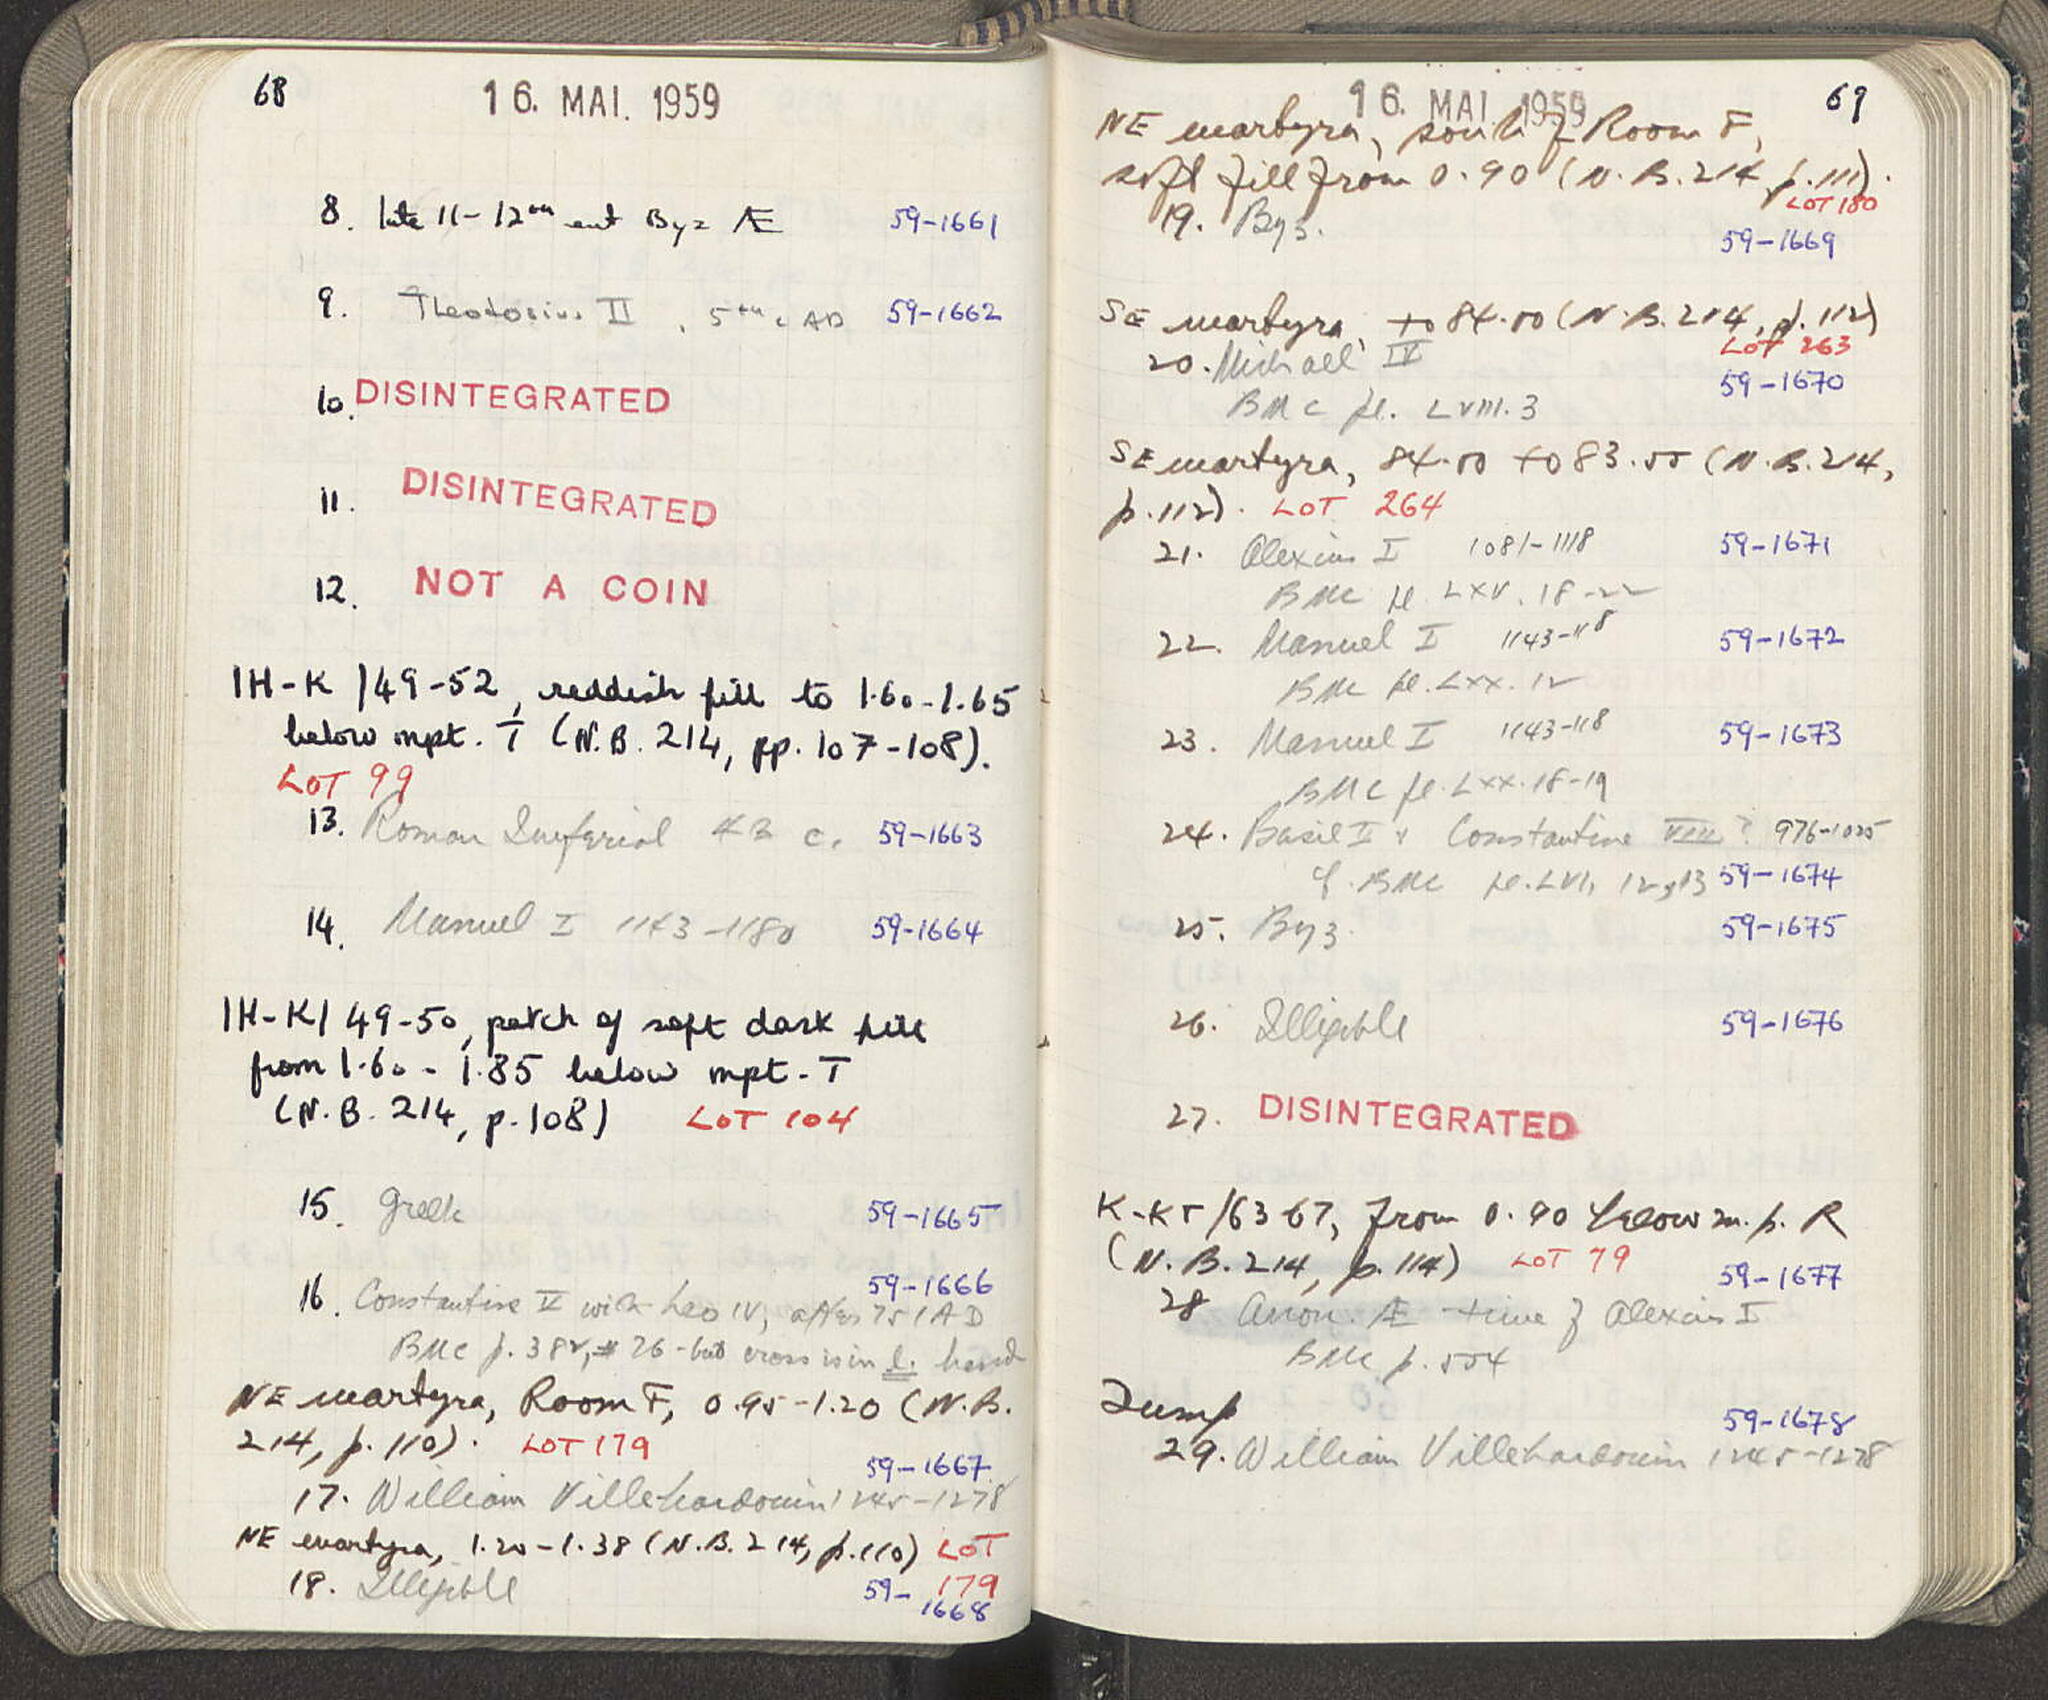 68
16. MAI. 1959
8. late 11-12th cent Byz Æ 59-1661
9. Theodosius II, 5th c AD 59-1662
10. DISINTEGRATED
11. DISINTEGRATED
12. NOT A COIN
IH-K/49-52, reddish fill to 1.60-1.65
below mpt. T (N.B. 214, pp. 107-108).
LOT 99
13. Roman Imperial c. 59-1663
14. Manuel I 1143-1180 59-1664
IH-K/49-50, patch of soft dark fill
from 1.60-1.85 below mpt. T
(N.B. 214, p. 108) LOT 104
15. Greek 59-1665
59-1666
16. Constantine V with Leo IV, after 751 AD
BMC p. 382, # 26 - but cross is in l. hand
NE martyra, Room F, 0.95-1.20 (N.B.
214, p. 110). LOT 179
59-1667
17. William Villehardouin 1245-1278
NE martyra, 1.20-1.38 (N.B. 214, p. 110) LOT
179
18. Illegible 59-
1668
16. MAI 1959
69
NE martyra, south of Room F,
soft fill from 0.90 (N.B. 214 p. 111).
LOT 180
19. Byz.
59-1669
SE martyra, to 84.00 (N.B. 214, p. 112)
LOT 263
20. Michael IV
59-1670
BMC pl. LVIII. 3
SE martyra, 84.00 to 83.55 (N.B. 214,
p. 112). LOT 264
21. Alexius I 1081-1118 59-1671
BMC pl. LXV. 18-22
22. Manuel I 1143-118 59-1672
BMC pl. LXX. 12
23. Manuel I 1143-118 59-1673
BMC pl. LXX. 18-19
24. Basil II & Constantine VIII? 976-1025
cf. BMC pl. LVI, 12, 13 59-1674
25. Byz. 59-1675
26. Illegible 59-1676
27. DISINTEGRATED
K-KT/63-67, from 0.90 below m.p. R
(N.B. 214, p. 114) LOT 79
59-1677
28 Anon. Æ time of Alexius I
BMC p. 554
Dump
59-1678
29. William Villehardouin 1245-1278